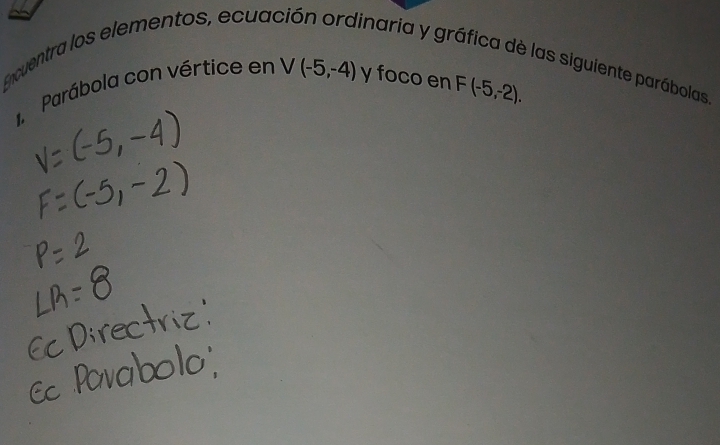 Encuentra los elementos, ecuación ordinaria y gráfica dè las siguiente parábolas.
1. Parábola con vértice en V (-5,-4) y foco en F (-5,-2).
V=(-5,-4)
F=(-5,-2)
P=2
LR=8
Ec Directriz:
Ec Parabola: